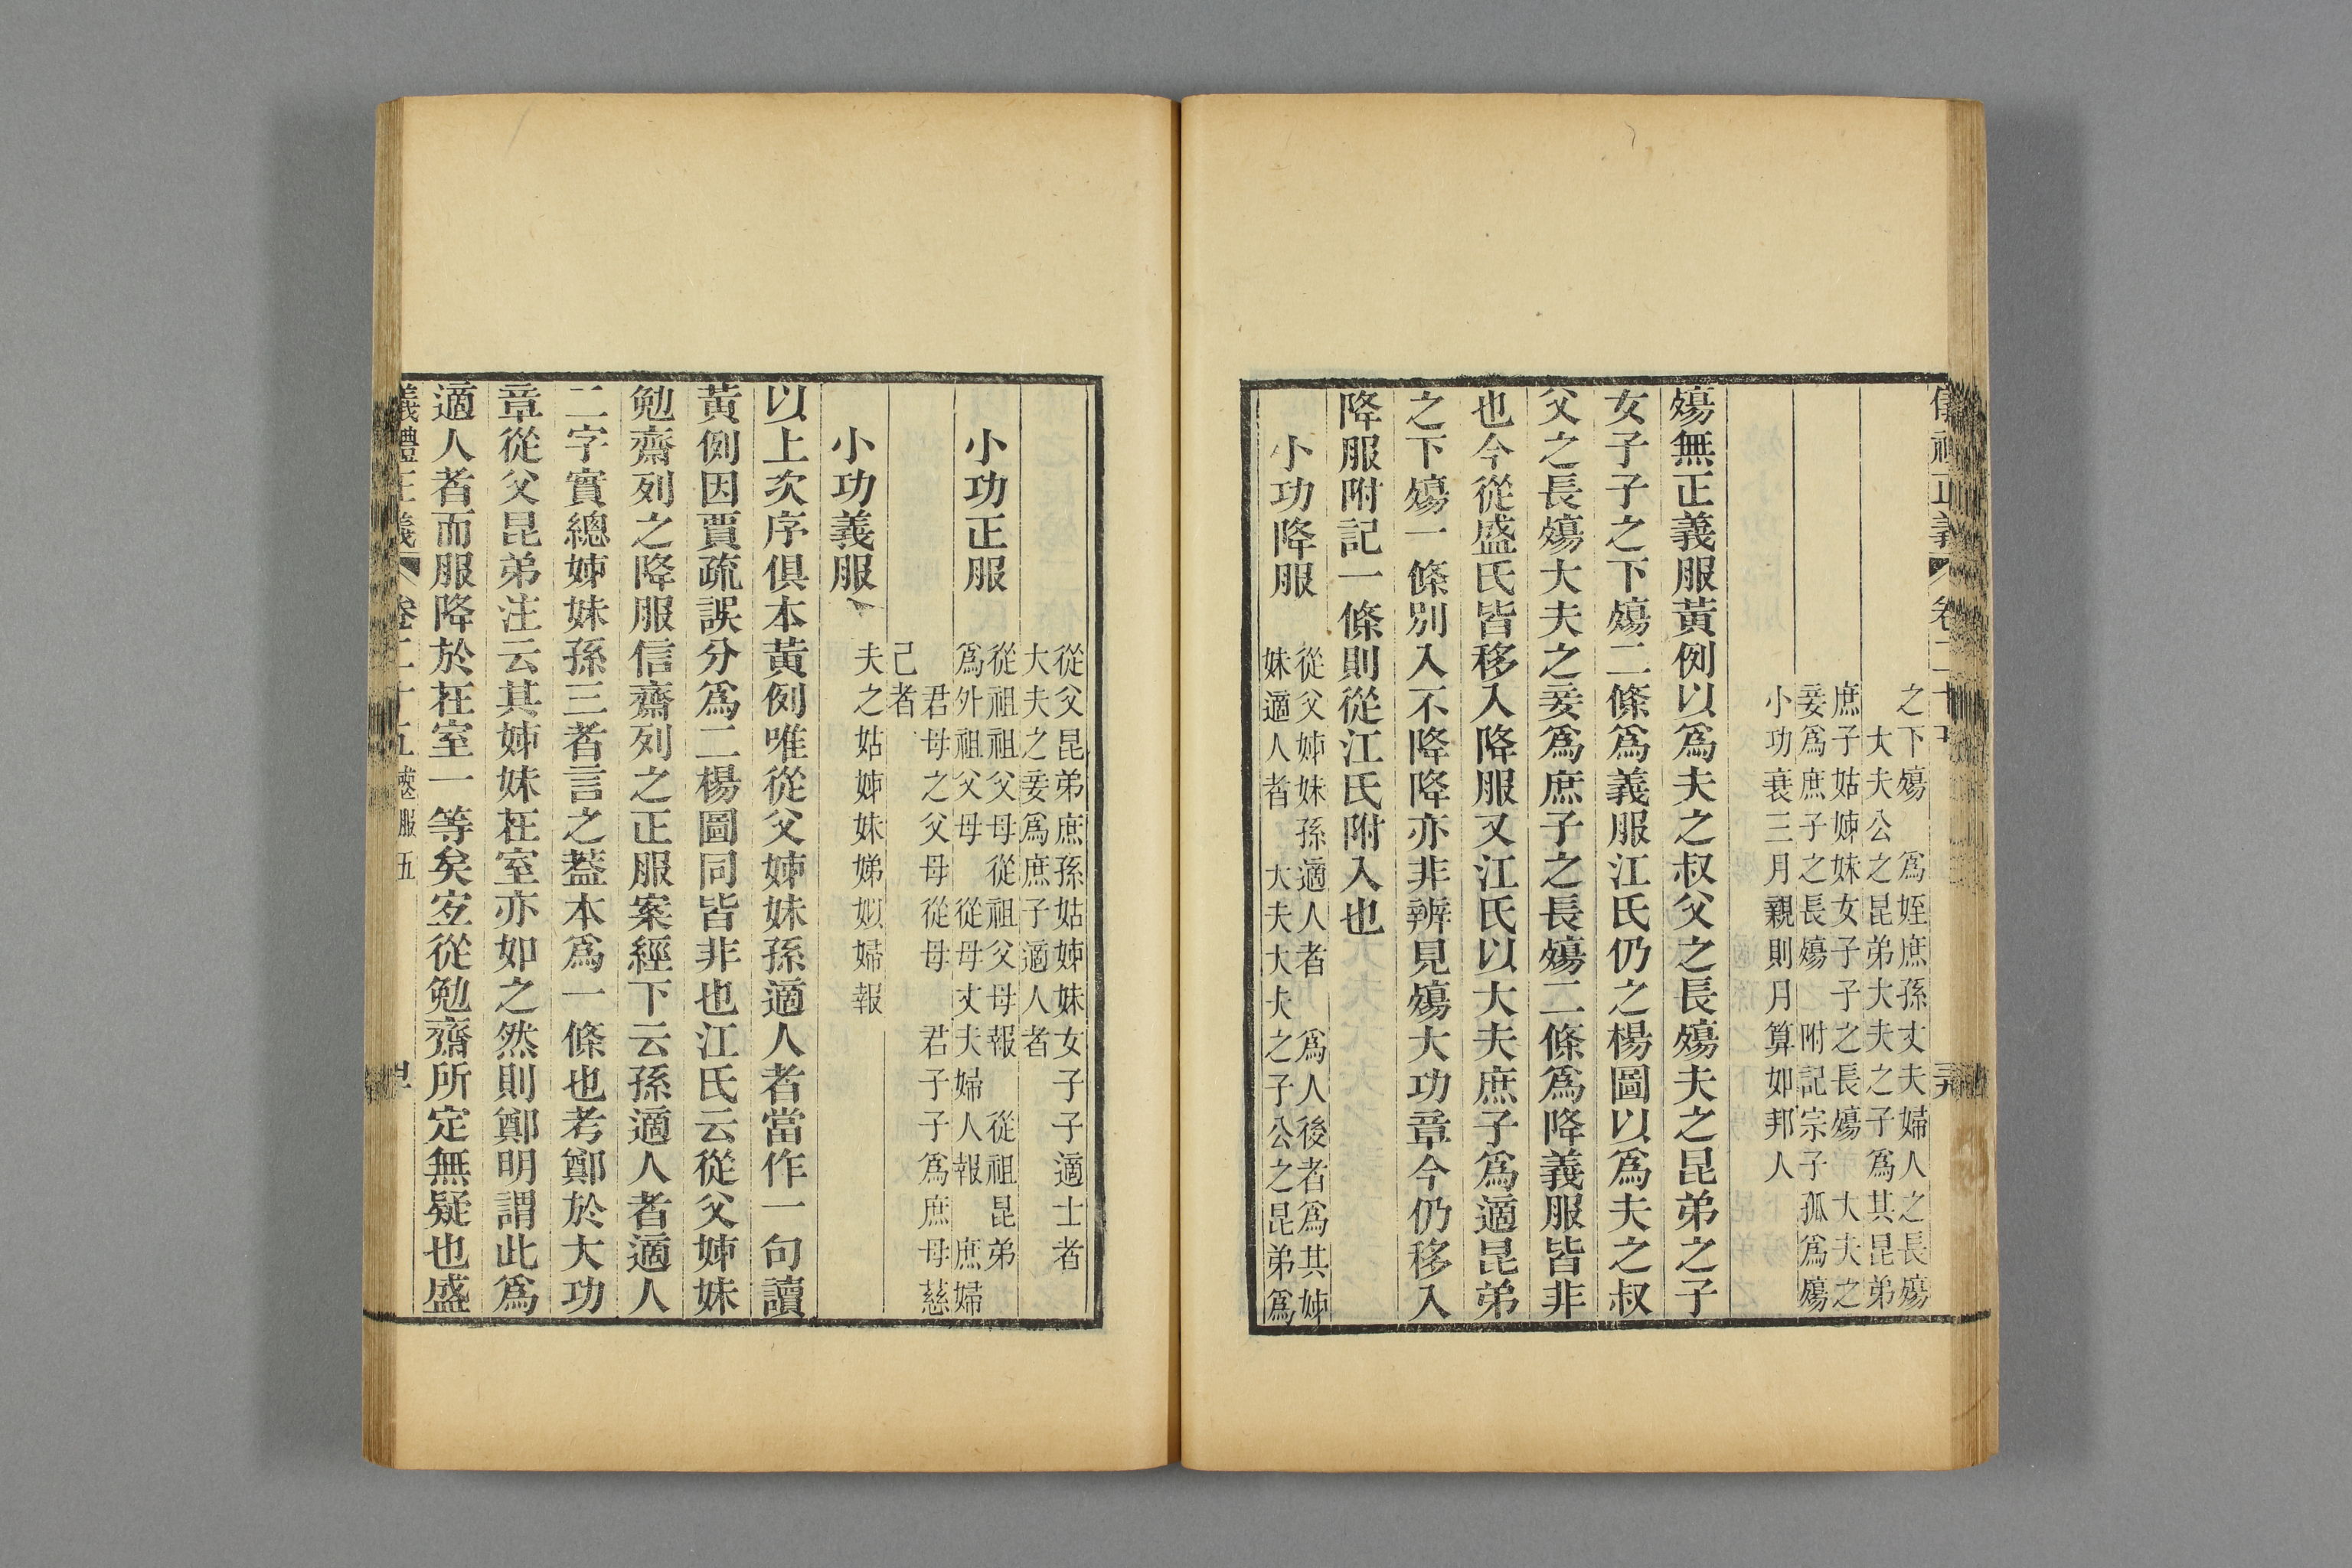 之下殤　爲姪庶孫丈夫婦人之長殤
大夫公之昆弟大夫之子爲其昆弟
庶子姑姊妹女子子之長殤　大夫之
妾爲庶子之長殤　附記宗子孤爲殤
小功衰三月親則月算如邦人
殤無正義服黃例以爲夫之叔父之長殤夫之昆弟之子
女子子之下殤二條爲義服江氏仍之楊圖以爲夫之叔
父之長殤大夫之妾爲庶子之長殤二條爲降義服皆非
也今從盛氏皆移入降服又江氏以大夫庶子爲適昆弟
之下殤一條別入不降降亦非辨見殤大功章今仍移入
降服附記一條則從江氏附入也
小功降服
從父姊妹孫適人者　爲人後者爲其姊
妹適人者　大夫大夫之子公之昆弟爲
從父昆弟庶孫姑姊妹女子子適士者
大夫之妾爲庶子適人者
小功正服
從祖祖父母從祖父母報　從祖昆弟
爲外祖父母　從母丈夫婦人報　庶婦
君母之父母從母　君子子爲庶母慈
己者
小功義服
夫之姑姊妹娣姒婦報
以上次序俱本黃例唯從父姊妹孫適人者當作一句讀
黃例因賈疏誤分爲二楊圖同皆非也江氏云從父姊妹
勉齋列之降服信齋列之正服案經下云孫適人者適人
二字實總姊妹孫三者言之蓋本爲一條也考鄭於大功
章從父昆弟注云其姊妹在室亦如之然則鄭明謂此爲
適人者而服降於在室一等矣宐從勉齋所定無疑也盛
儀禮正義　卷二十五　喪服五